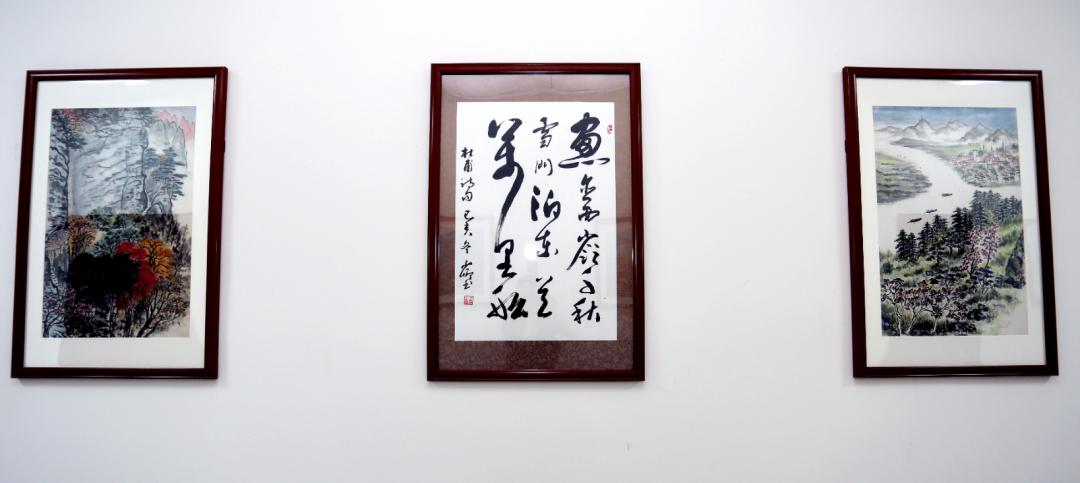 窗含西嶺千秋
雪门泊东吴
萬里船
杜甫诗句 己亥冬